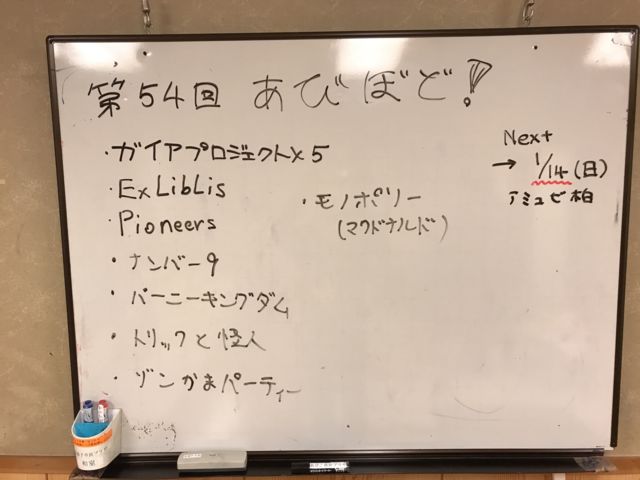 第54回 あびぼど!
・ガイアプロジェクト×5
・ExLibLis
・Pioneers
・ナンバー9
・バーニーキングダム
・トリックと怪人
・ゾンかまパーティー
・モノポリー
(マクドナルド)
Next
→ 1/14(日)
アミュゼ柏
和室